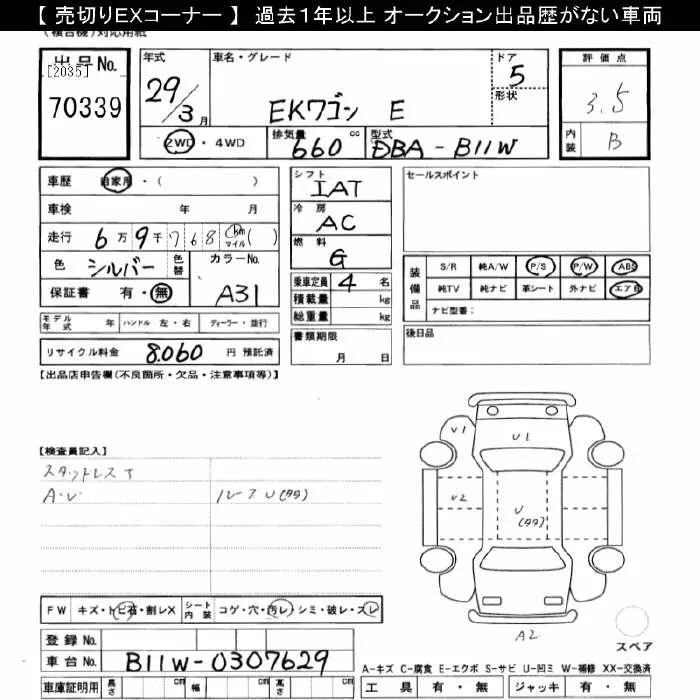 【 売切りEXコーナー 】 過去1年以上 オークション出品歴がない車両
(複合機)対応用紙
出品No. [2035] 70339
年式 29/3月
車名・グレード EKワゴン E
ドア 5
形状
評価点 3.5
内装 B
2WD ・ 4WD
排気量 660 cc
型式 DBA-B11W
車歴 自家用・( )
車検 年 月
走行 6万9千768 km マイル ( )
色 シルバー 色替
カラーNo. A31
保証書 有・無
シフト IAT
冷房 AC
燃料 G
乗車定員 4 名
積載量 kg
総重量 kg
セールスポイント
装備品 S/R 純A/W P/S P/W ABS
純TV 純ナビ 革シート 外ナビ エアB
ナビ型番:
モデル年式 年 ハンドル 左・右 ディーラー・並行
書類期限 月 日
後日品
リサイクル料金 8,060 円 預託済
【出品店申告欄(不良箇所・欠品・注意事項等)】
【検査員記入】
スタットレスT
A・U ルーフU(タタ)
U1 U1
U2 U(タタ)
A2
スペア
FW キズ・トビ石・割レX シート内装 コゲ・穴・汚レ・シミ・破レ・スレ
登録No.
車台No. B11W-0307629
A-キズ C-腐食 E-エクボ S-サビ U-凹ミ W-補修 XX-交換済
車庫証明用 長さ cm 幅 cm 高さ cm
工具 有・無 ジャッキ 有・無